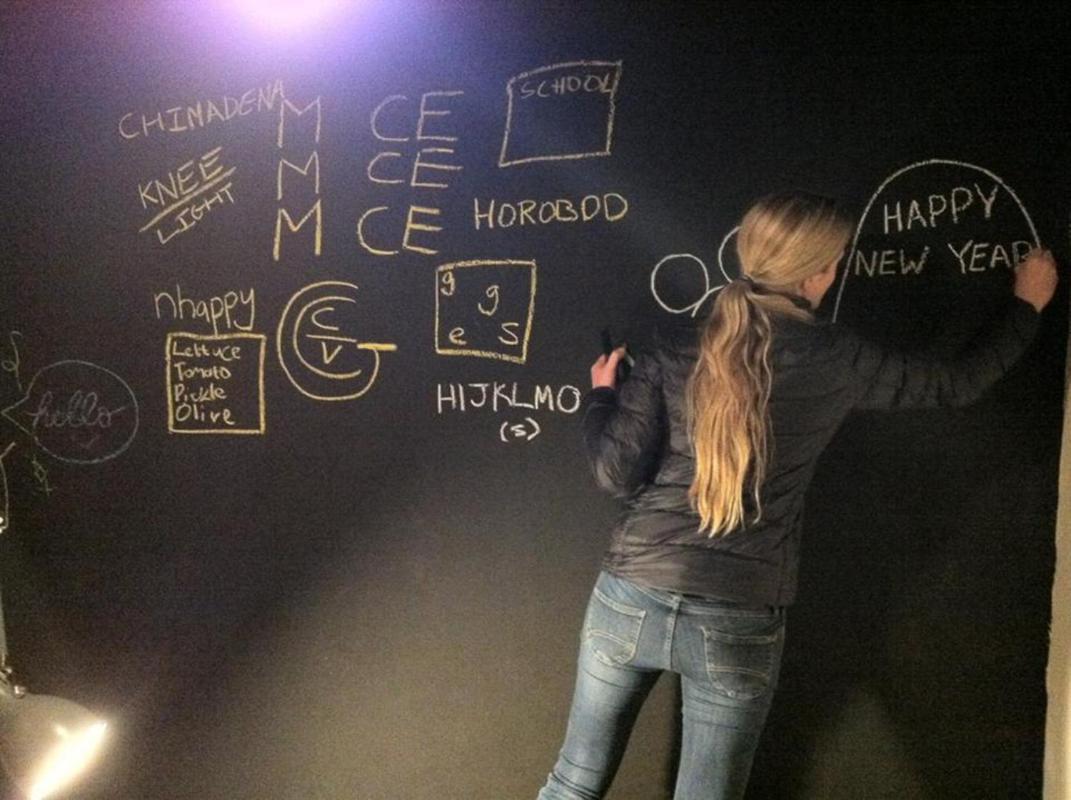 CHIMADENA
M CE
M CE
M CE
SCHOOL
KNEE
LIGHT
HOROBOD
HAPPY
NEW YEAR
nhappy
Lettuce
Tomato
Pickle
Olive
C
V
G
g
g
e s
HIJKLMO
(s)
hello